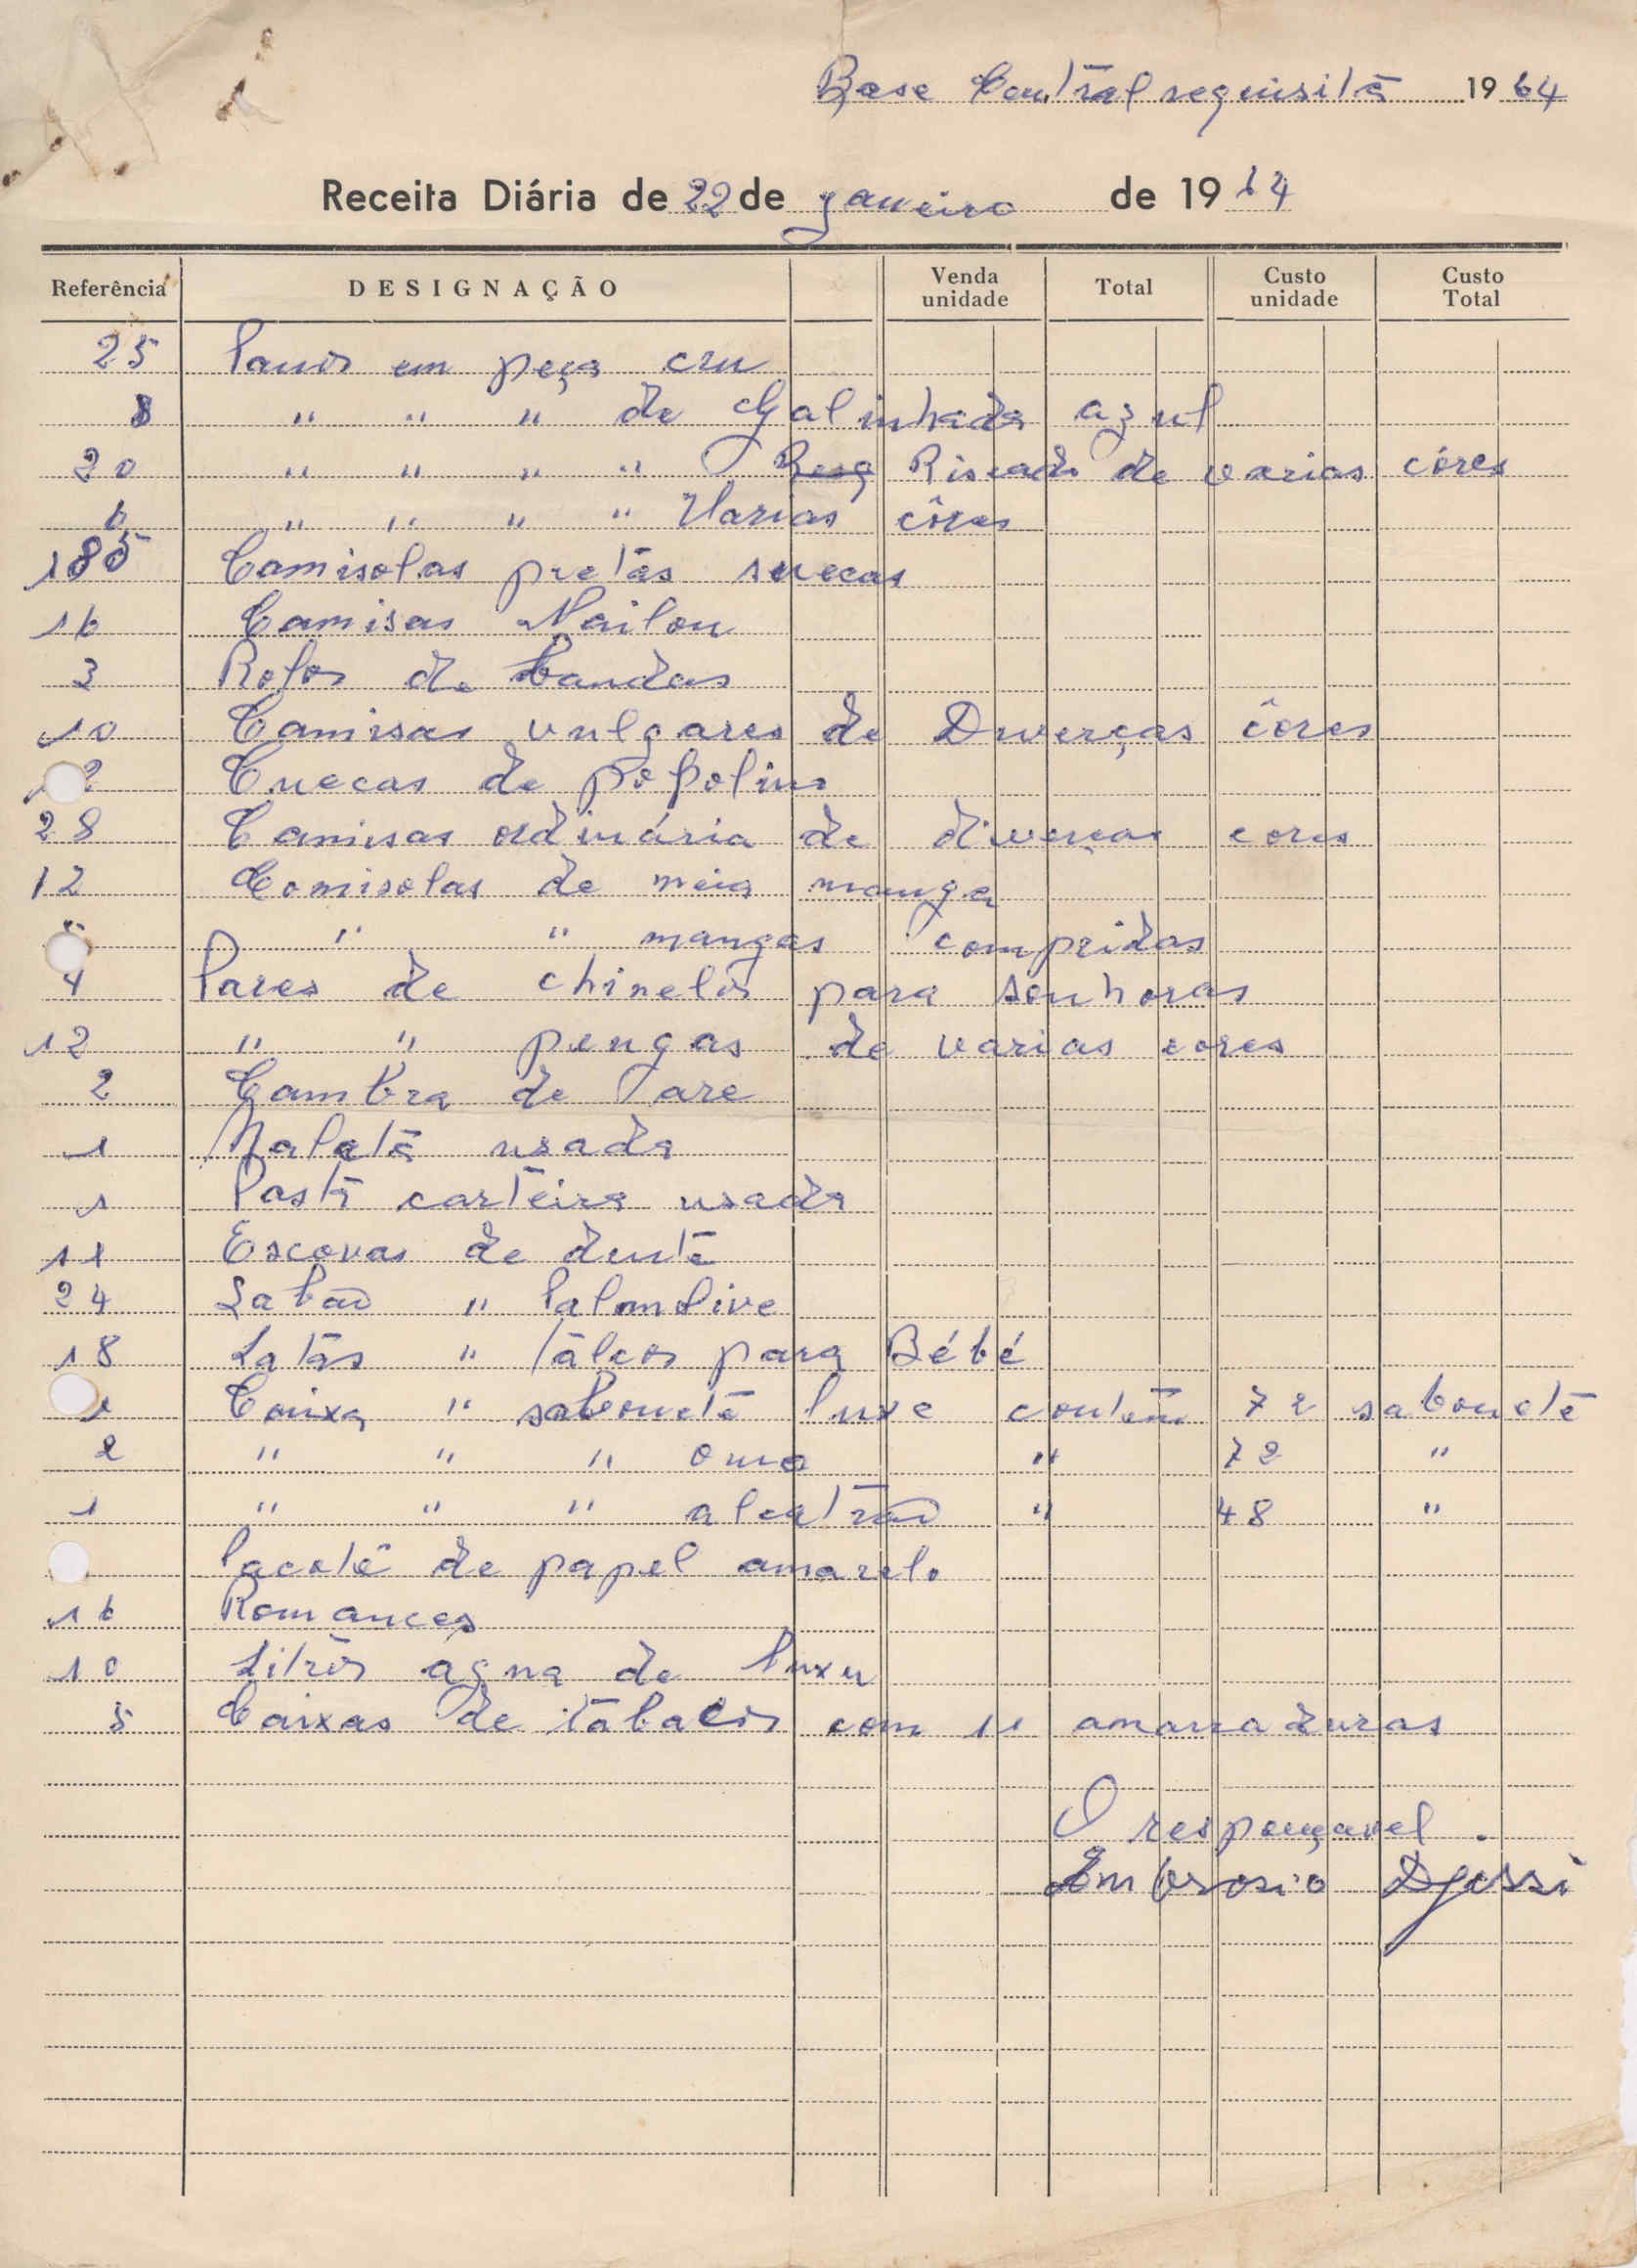 Base Central requisita 1964
Receita Diária de 22 de janeiro de 1964
Referência DESIGNAÇÃO Venda unidade Total Custo unidade Custo Total
25 Panos em peça cru
8 " " " de Galinhada azul
20 " " " " Riscado de varias côres
6 " " " " Varias côres
185 Camisolas pretas suecas
16 Camisas Nailon
3 Rolos de bandas
10 Camisas vulgares de Diverças côres
12 Cuecas de popolina
28 Camisas ordinária de diverças cores
12 Comisolas de meia manga
" " mangas compridas
4 Pares de chinelos para senhoras
12 " " peugas de varias cores
2 de
1 Malata usada
1 Pasta carteira usada
11 Escovas de dente
24 Sabão " Palmolive
18 Latas " tálcos para Bébé
1 Caixa " sabonete luxe contem 72 sabonete
2 " " " omo " 72 "
1 " " " alcatrão " 48 "
Pacote de papel amarelo
16 Romances
10 Litros água de luxu
5 Caixas de tabacos com 11 amarraduras
O responçavel.
Embrosio Djassi